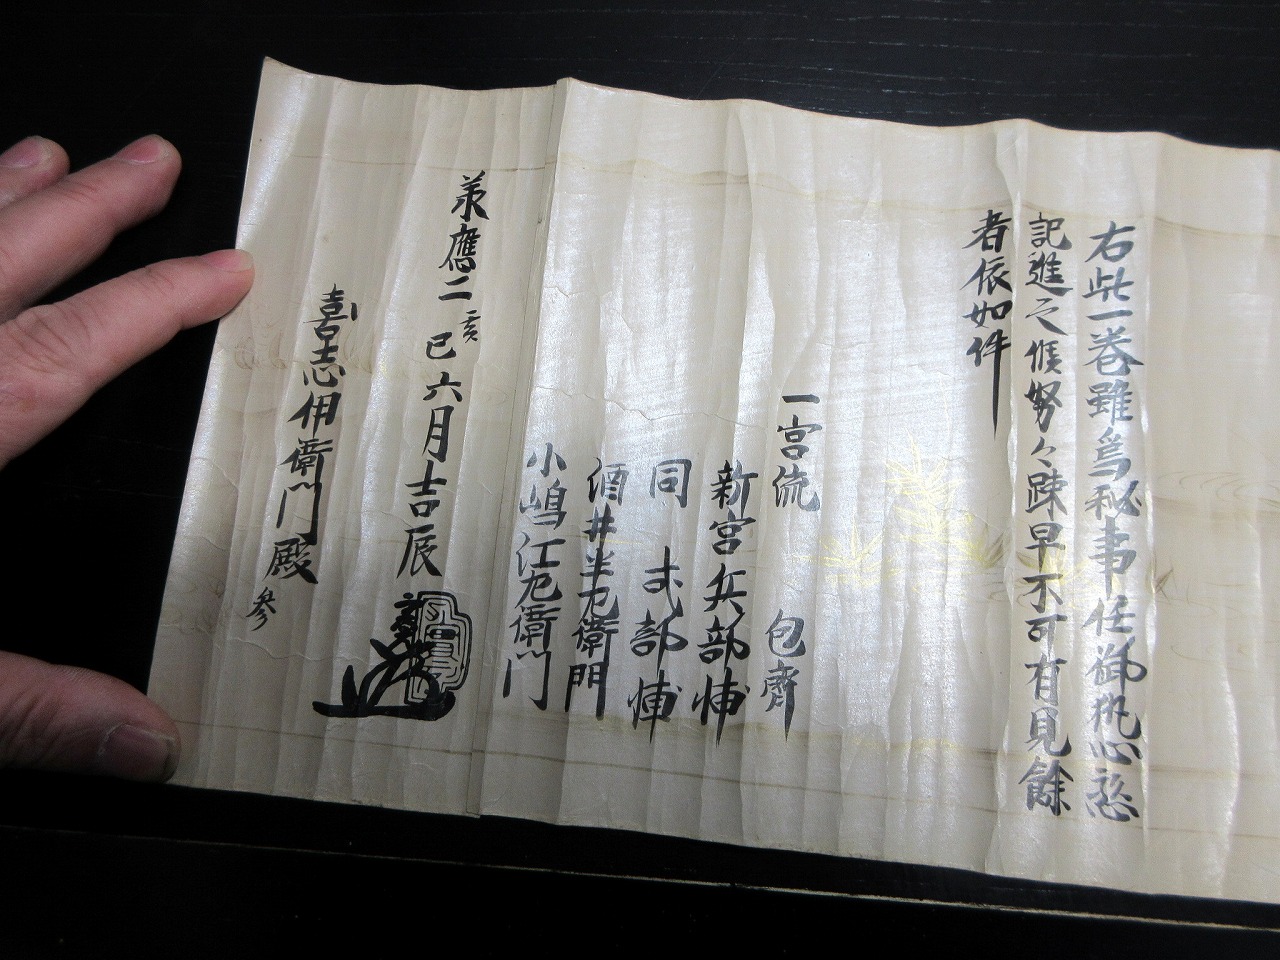 右此一巻雖為秘事任御執心慇
記進之候努々疎早不可有見餘
者依如件
一宮流 包齊
新宮兵部輔
同 式部輔
酒井半左衛門
小嶋江左衛門
承應二癸巳六月吉辰
喜志伊衛門殿 參